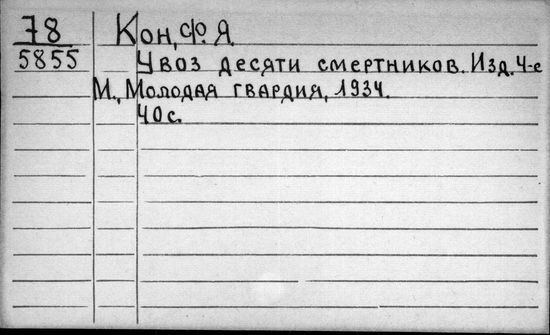 78
5855
Кон, Ф. Я.
Увоз десяти смертников. Изд. 4-е
М., Молодая гвардия, 1934.
40 с.